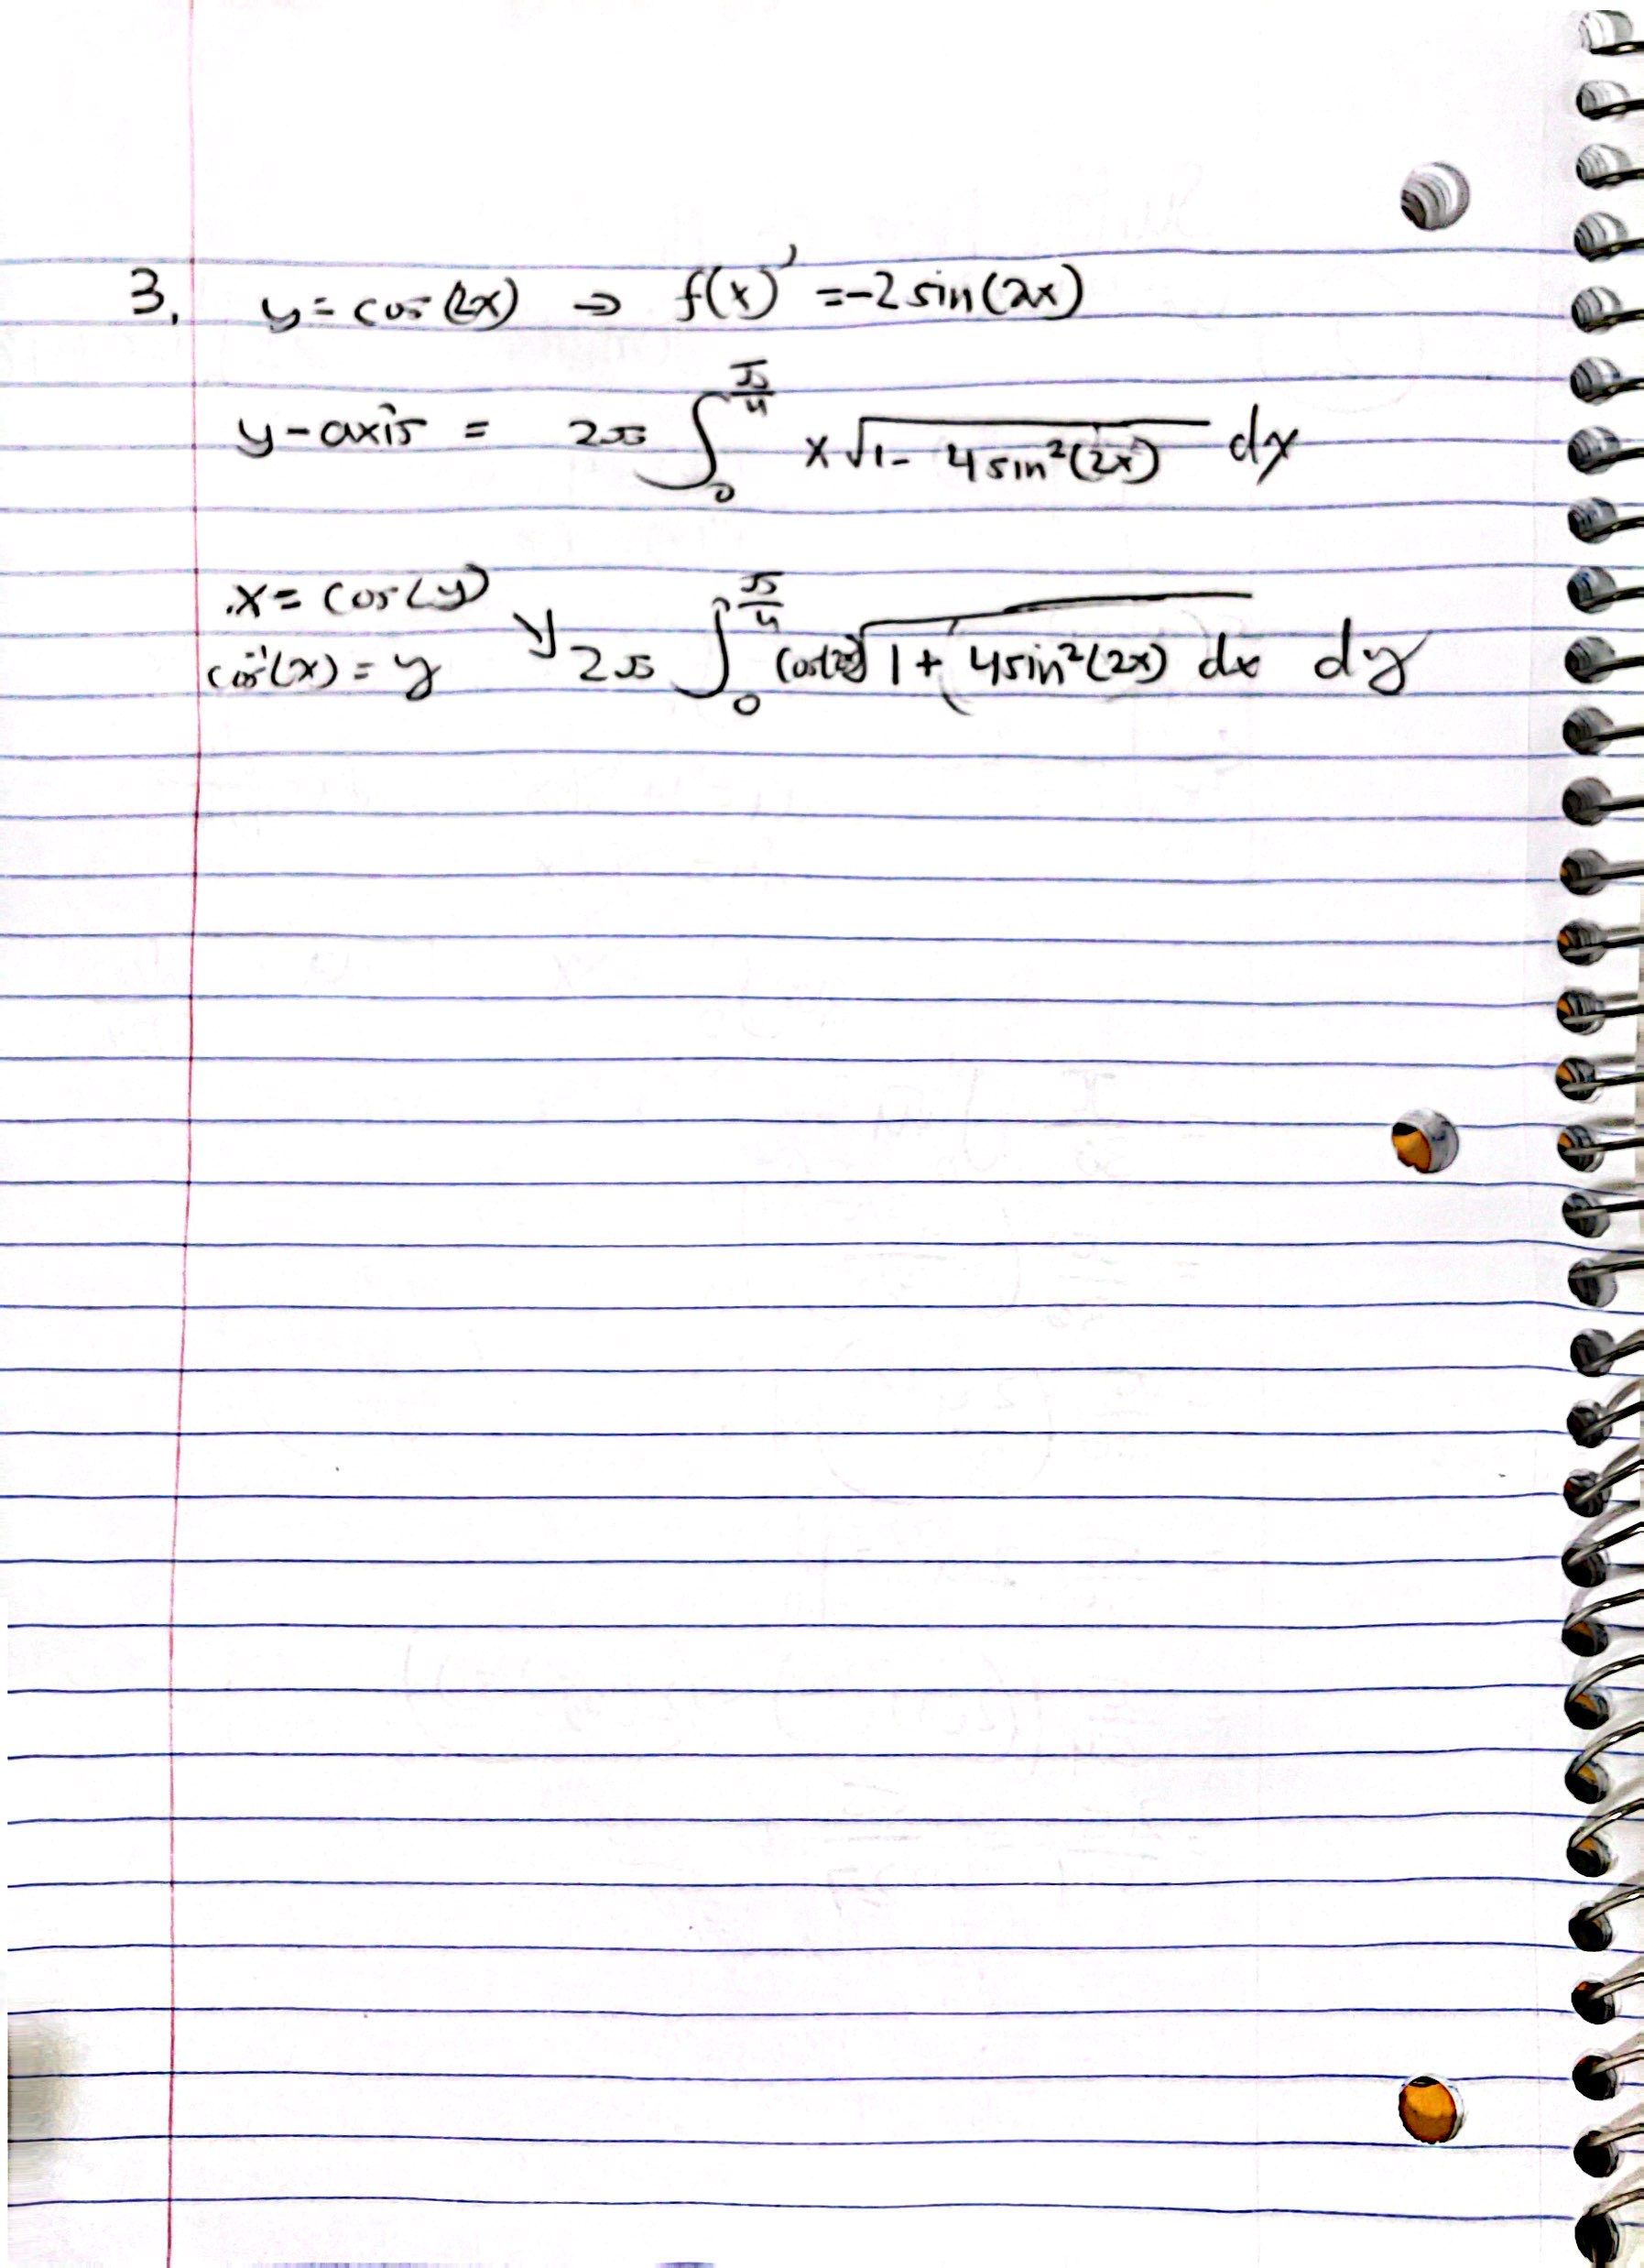 3. y = cos(2x) ⇒ f(x)' = -2 sin(2x)
y-axis = 2π ∫₀^(π/4) x √(1 - 4 sin²(2x)) dx
x = cos(y)
cos⁻¹(x) = y ↘ 2π ∫₀^(π/4) cos(2x) √(1 + 4 sin²(2x)) dx dy